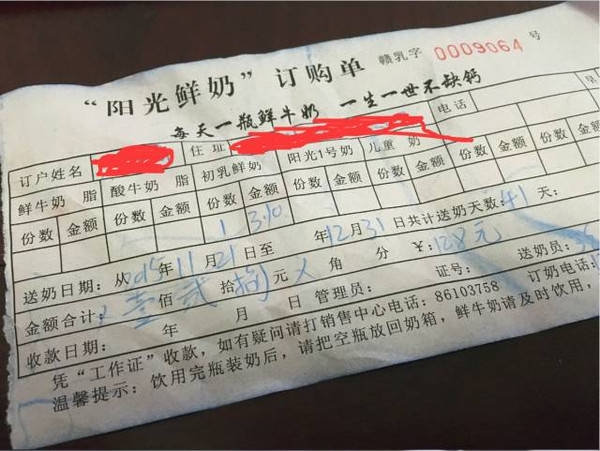 “阳光鲜奶”订购单 赣乳字 0009064 号
每天一瓶鲜牛奶 一生一世不缺钙
订户姓名 住址 电话
鲜牛奶 脂 酸牛奶 脂 初乳鲜奶 阳光1号奶 儿童 奶 早
份数 金额 份数 金额 份数 金额 份数 金额 份数 金额 份数 金额
1
送奶日期:从 2015 年 11 月 21 日至 年 12 月 31 日共计送奶天数: 41 天:
金额合计: 壹 佰 贰 拾 捌 元 角 分 ¥: 128元 送奶员:
收款日期: 年 月 日 管理员: 证号: 订奶电话
凭“工作证”收款,如有疑问请打销售中心电话:86103758
温馨提示:饮用完瓶装奶后,请把空瓶放回奶箱,鲜牛奶请及时饮用,